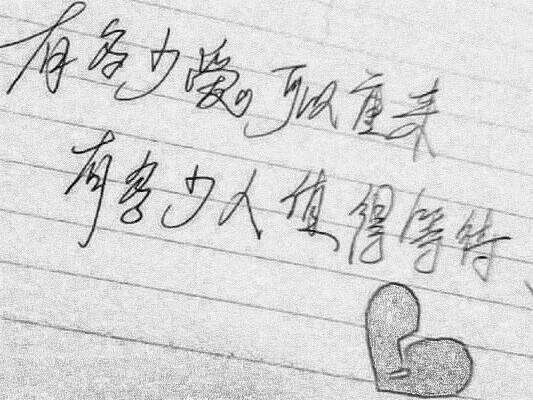 有多少爱可以重来
有多少人值得等待、